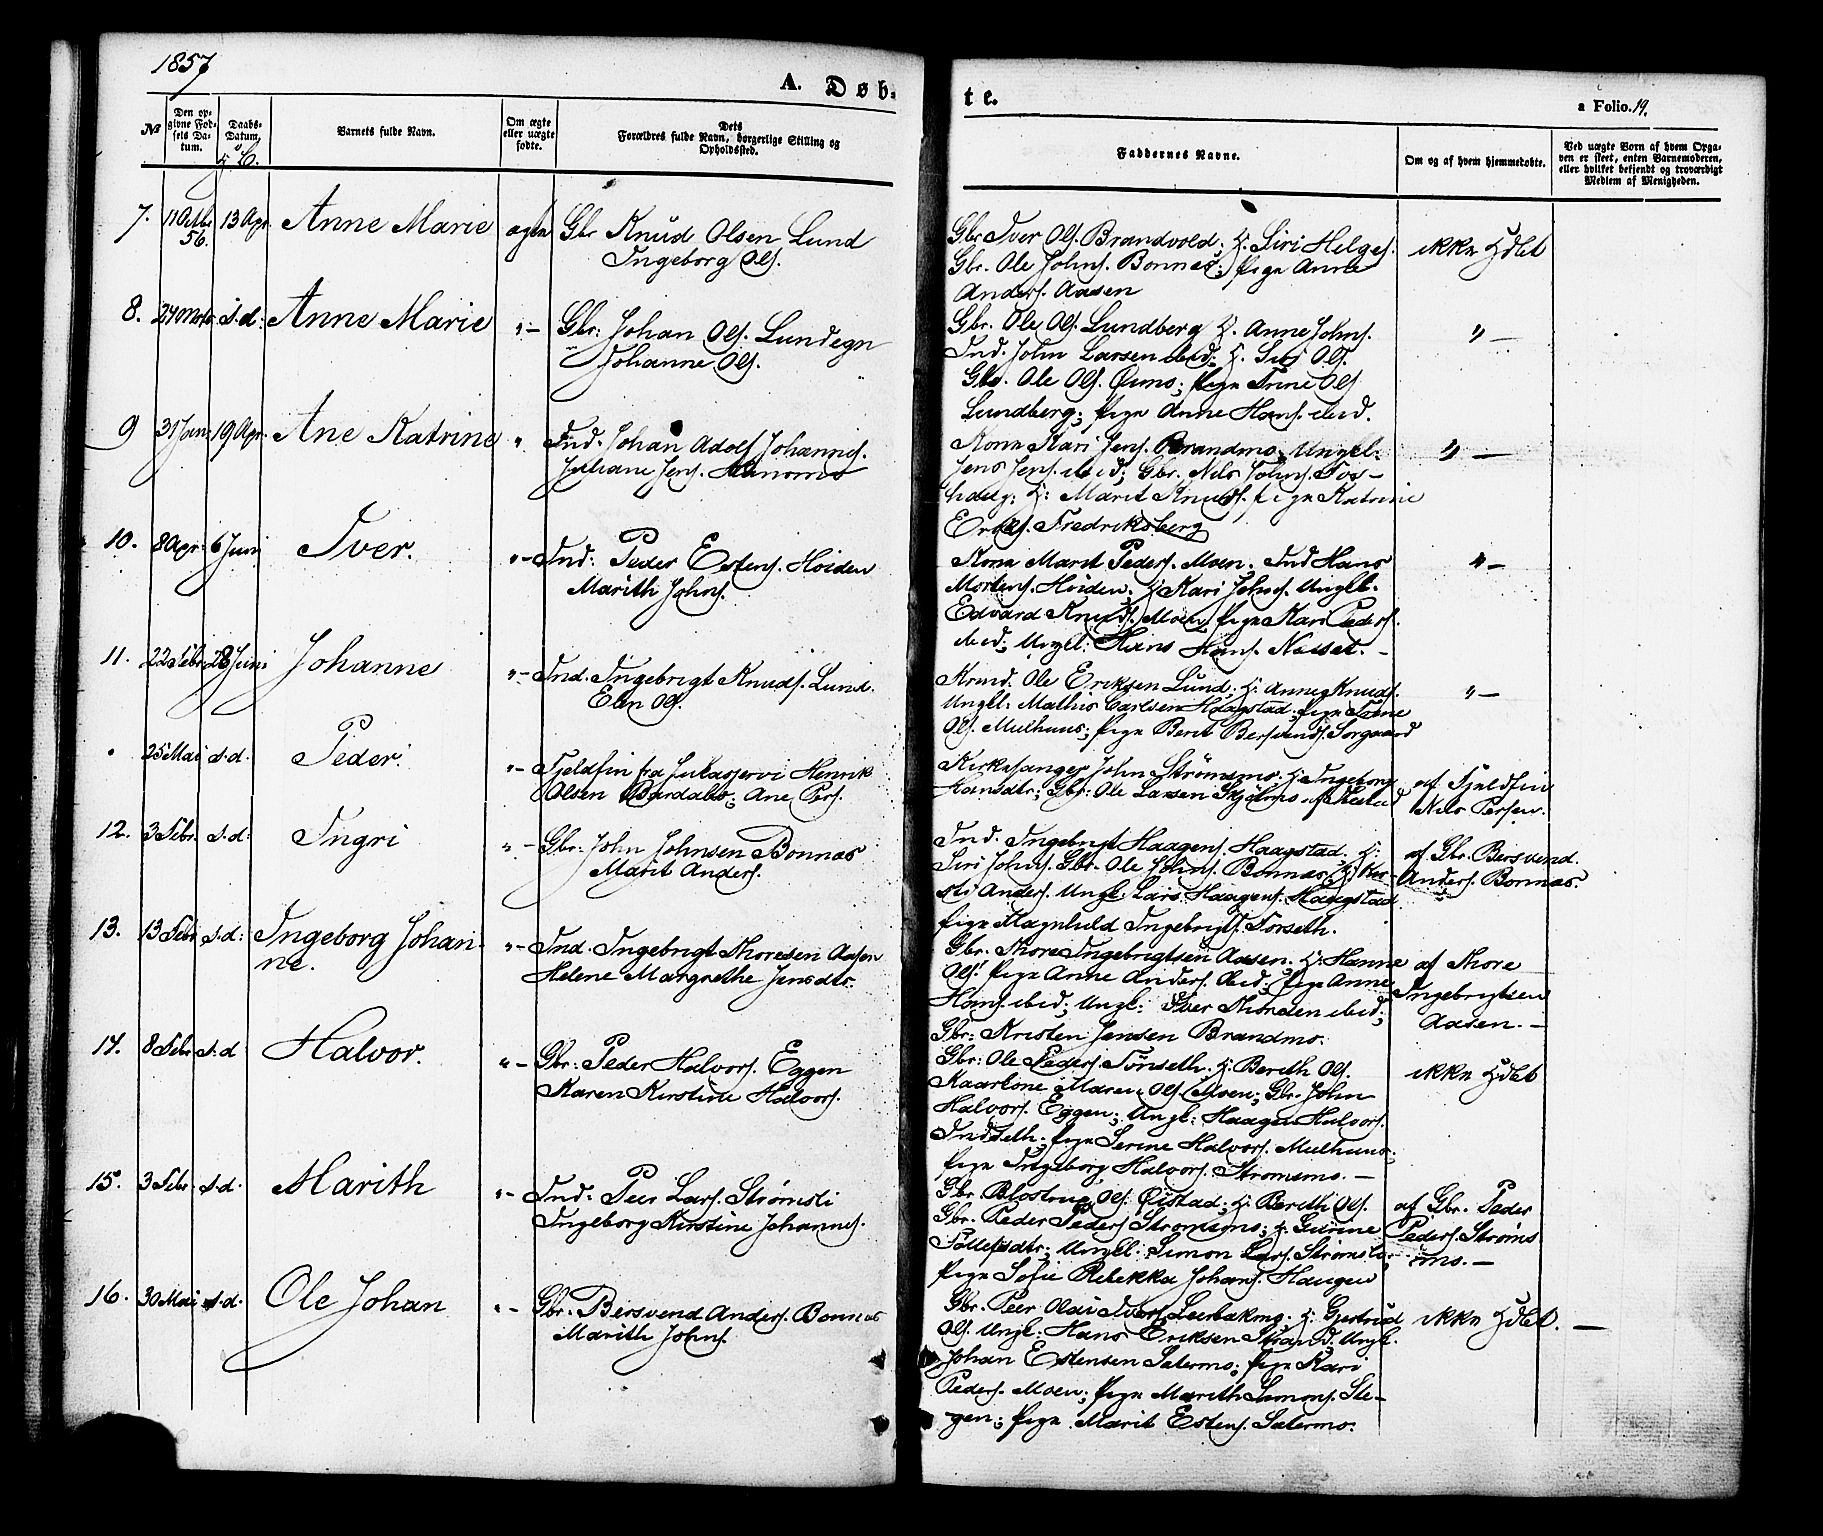 1857
A. Døb-
te.
a Folio. 19.
№
Den op-
givne Fød-
sels Da-
tum.
Daabs-
Datum,
Barnets fulde Navn.
Om ægte
eller uægte
fødte.
Dets
Forældres fulde Navn, borgerlige Stilling og
Opholdssted.
Faddernes Navne.
Om og af hvem hjemmedøbte.
Ved uægte Børn af hvem Opga-
ven er skeet, enten Barnemoderen,
eller hvilket bekjendt og troværdigt
Medlem af Menigheden.
7. 11 Octbr 56. 13 Apr. Anne Marie ægte Gbr Knud Olsen Lund
Ingeborg Ols.
Gbr Iver Ols. Brandvold. H. Siri Helges.
Gbr. Ole Johns. Bonnes; pige Anne
Anders. Aasen
ikke Hdbt
8. s.d: Anne Marie "- Gbr: Johan Ols. Lundegn
Johanne Ols.
Gbr. Ole Ols. Lundberg H. Anne Johns.
Ind. John Larsen ibid; H. Siri Ols.
Gbr. Ole Ols. Øuns; pige Trine Ols
Lundberg; pige Anne Hans. ibid.
" -
9 31 Jan: 19 Apr. Ane Katrine " Ind. Johan Adolf Johannes.
Juliane Jens.
Kone Kari Jens. Brandmo; Ungk:
Jens Jens. ibid; Gbr. Nils Johns. Fos-
haug; H: Marit Knuds. pige Katrine
Fredriksberg
" -
10. 8 Apr: 6 Juni Iver. "- Ind: Peder Estens. Høiden
Marith Johns.
Kone Marit Peders. Moen; Ind Hans
Mortens. Høiden; H Kari Johns. Ungk.
Edvard Knuds. Moen, pige Kari Peders.
ibid; Ungk: Hans Hans. Nesset. -
" -
11. 22 Febr 28 Juni Johanne "- Ind. Ingebrigt Knuds. Lund.
Elen Ols.
Ole Eriksen Lund; H: Anne Knuds.
Ungk: Mathis Carlsen Haagstad; pige Trine
Ols. Mulhuus; pige Berit Bersvends. Sorgaard
" -
25 Mai s.d. Peder. "- Fjeldfin fra Henrik
Olsen Bardabo; Ane Pers.
Kirkesanger John Strømsmo. H: Ingeborg
Hansdtr; Gbr: Ole Larsen Skjølmo
af Fjeldfin
Nils Persen.
12. 3 Febr. s.d: Ingri "- Gbr: John Johnsen Bonnas
Marit Anders.
Ind. Ingebrigt Haagens. Haagstad. H:
Siri Johns. Gbr. Ole Johns. Bonnas, H: Kir-
sti Anders. Ungk. Lars Haagens. Haagstad
pige Magnhild Ingebrigts. Forseth.
af Gbr. Bersvend.
Anders. Bonnas.
13. 13 Febr s.d: Ingeborg Johan-
ne. "- Ind. Ingebrigt Thoresen Aasen
Helene Margrethe Jensdtr.
Gbr. Thore Ingebrigtsen Aasen. H: Hanne
Ols. pige Anne Anders. ibid; pige Anne
Hans. ibid; Ungk: Iver Thoresen ibid;
Gbr: Kristen Jensen Brandmo.
af Thore
Ingebrigtsen
Aasen. -
14. 8 Febr s.d Halvor. "- Gbr: Peder Halvors. Eggen
Karen Kirstine Halvors.
Gbr: Ole Peders. Tønseth. H: Berith Ols.
Kaarkone Maren Ols. Moen; Gbr. John
Halvors. Eggen; Ungk: Haagen Halvors.
Indseth; pige Serine Halvors. Mulhuus;
pige Ingeborg Halvors. Strømsmo. -
ikke Hdbt
15. 3 Febr. s.d. Marith "- Ind: Peer Lars. Strømsli
Ingeborg Kirstine Johannes.
Gbr. Ols. Øistad; H: Berith Ols.
Gbr. Peder Peders. Strømsmo; H: Gurine
Tollefsdtr; Ungk: Simon Lars. Strømsli;
pige Sofie Rebekka Johans. Haugen
af Gbr. Peder
Peders. Strøms
mo. -
16. 30 Mai s.d. Ole Johan "- Gbr: Bersvend Anders. Bonnas
Marith Johns.
Gbr. Peer Olai Ivers. H: Gjertrud
Ols. Ungk: Hans Eriksen Strand. Ungk.
Johan Estensen Satermo; pige Kari
Peders. Moen; pige Marith Simons. Ste-
gen; pige Marit Estens. Satermo.
ikke Hdbt. -